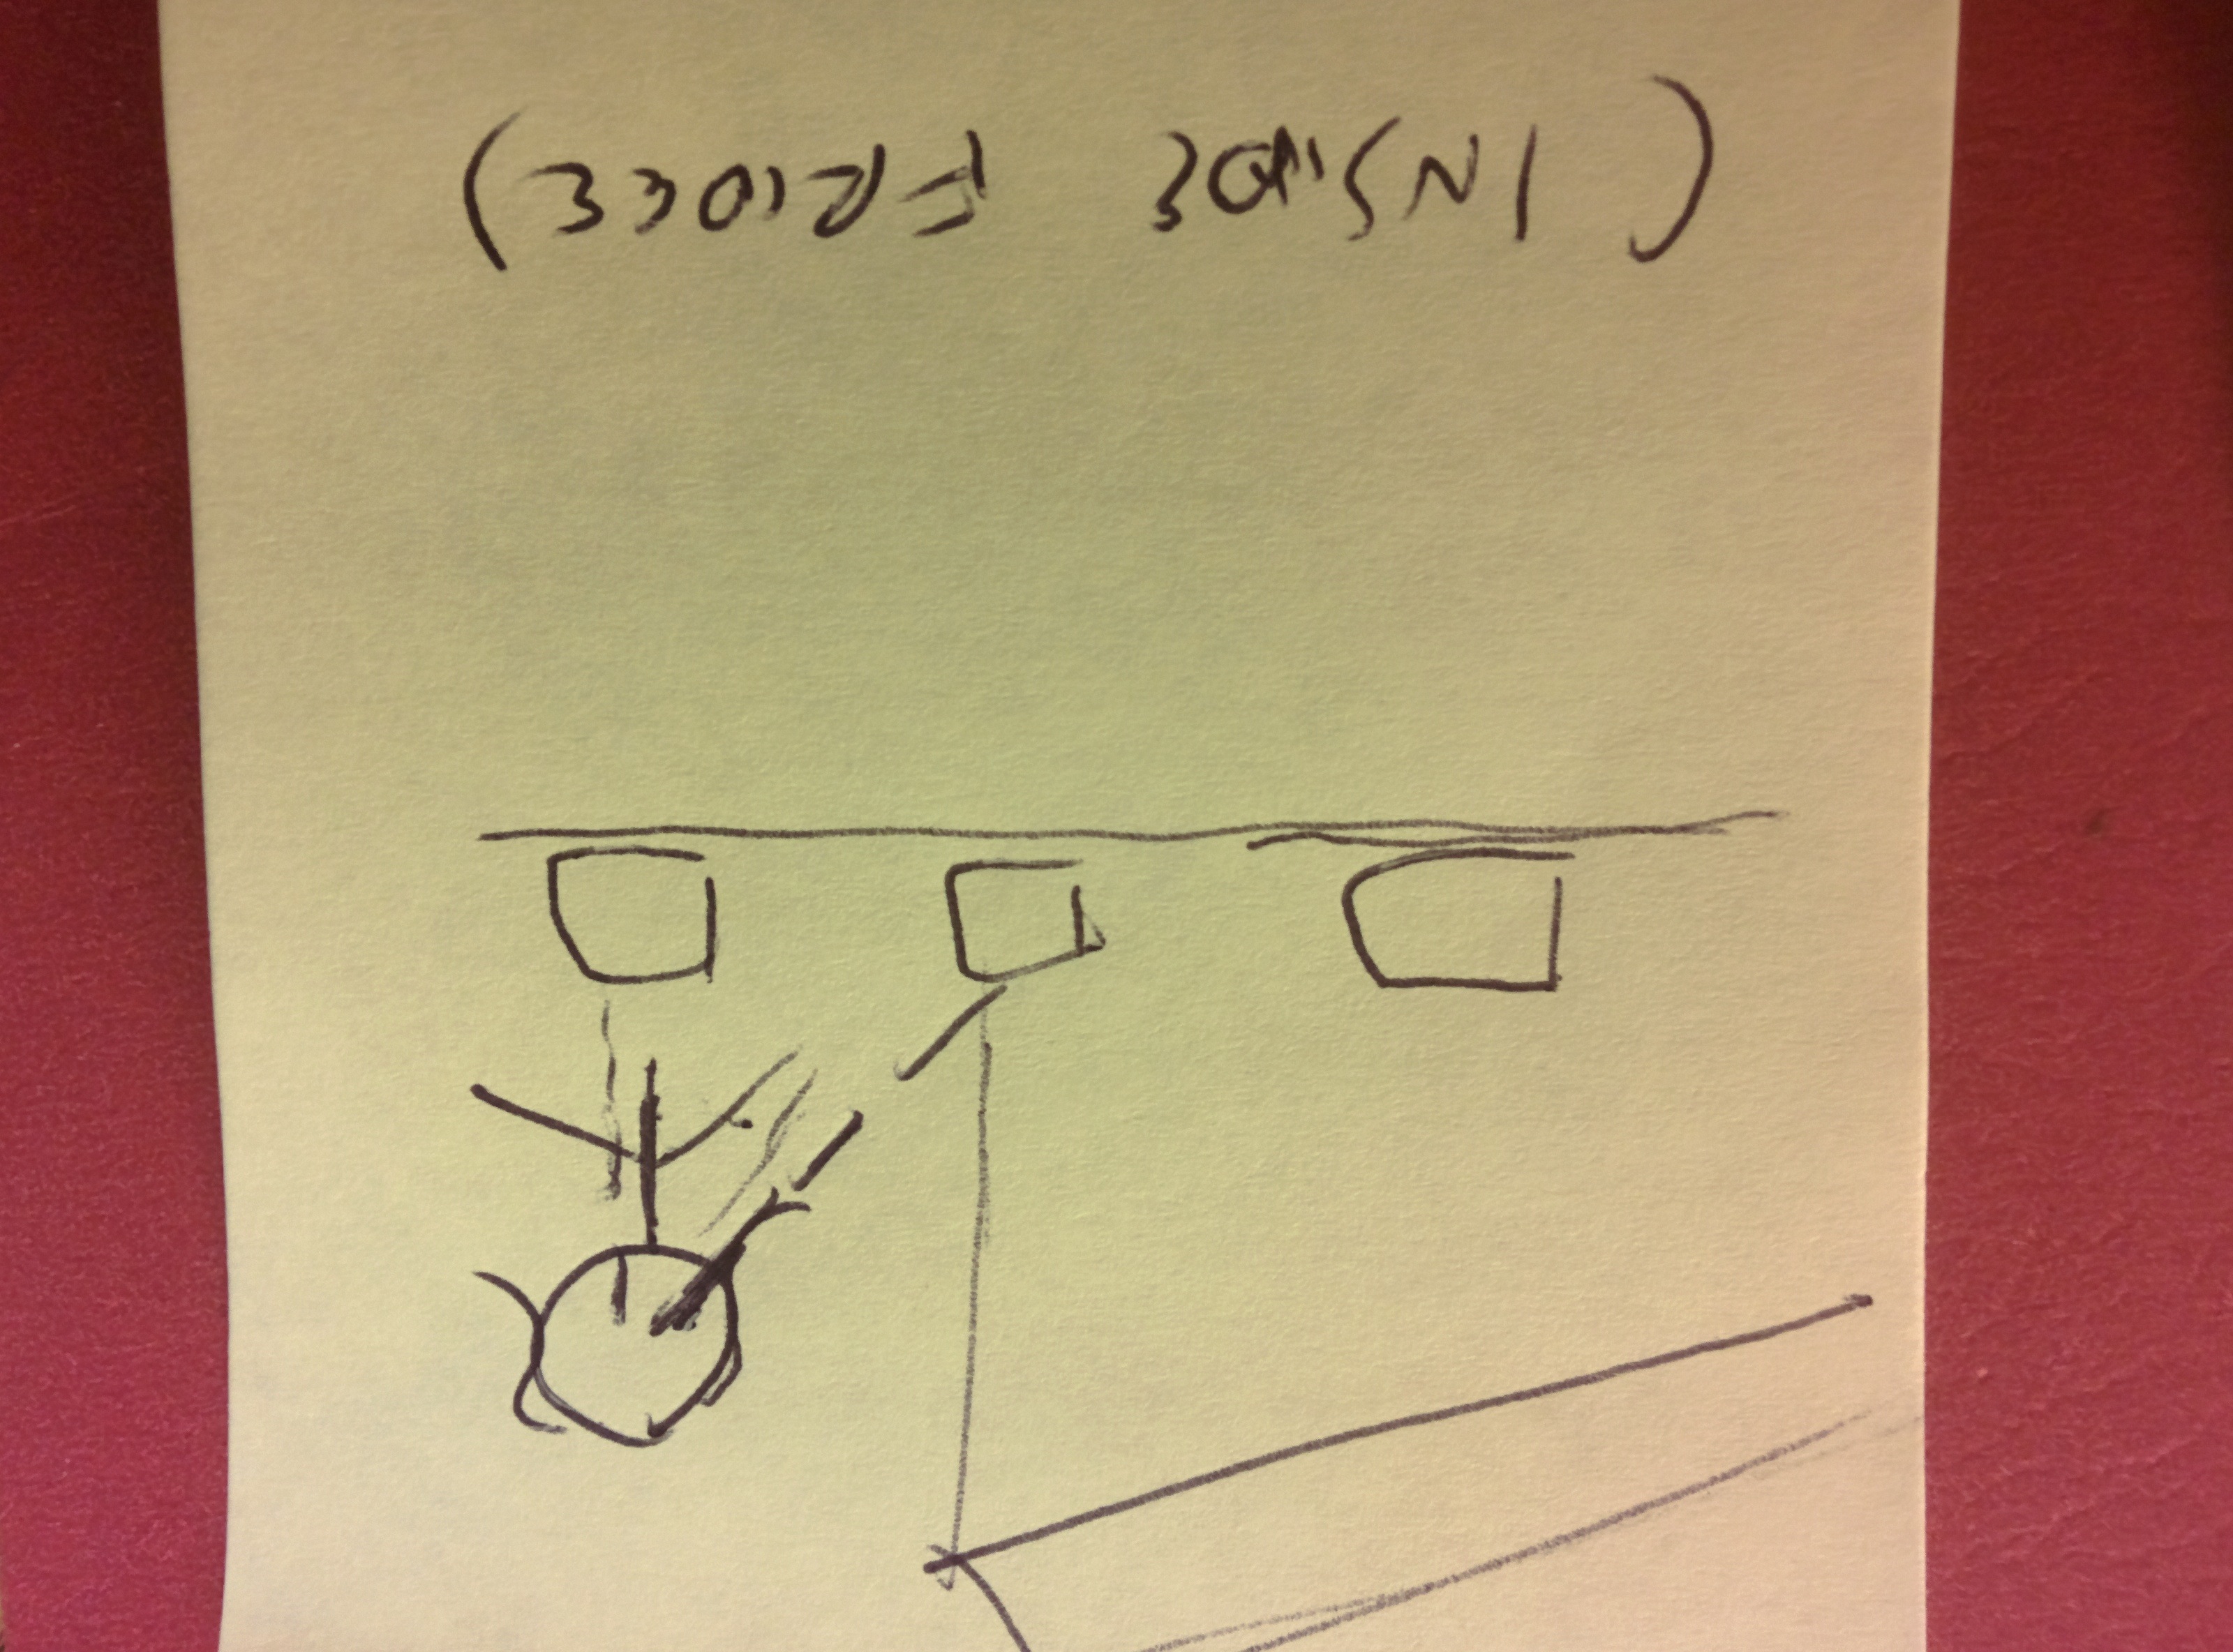 (INSIDE FRIDGE)